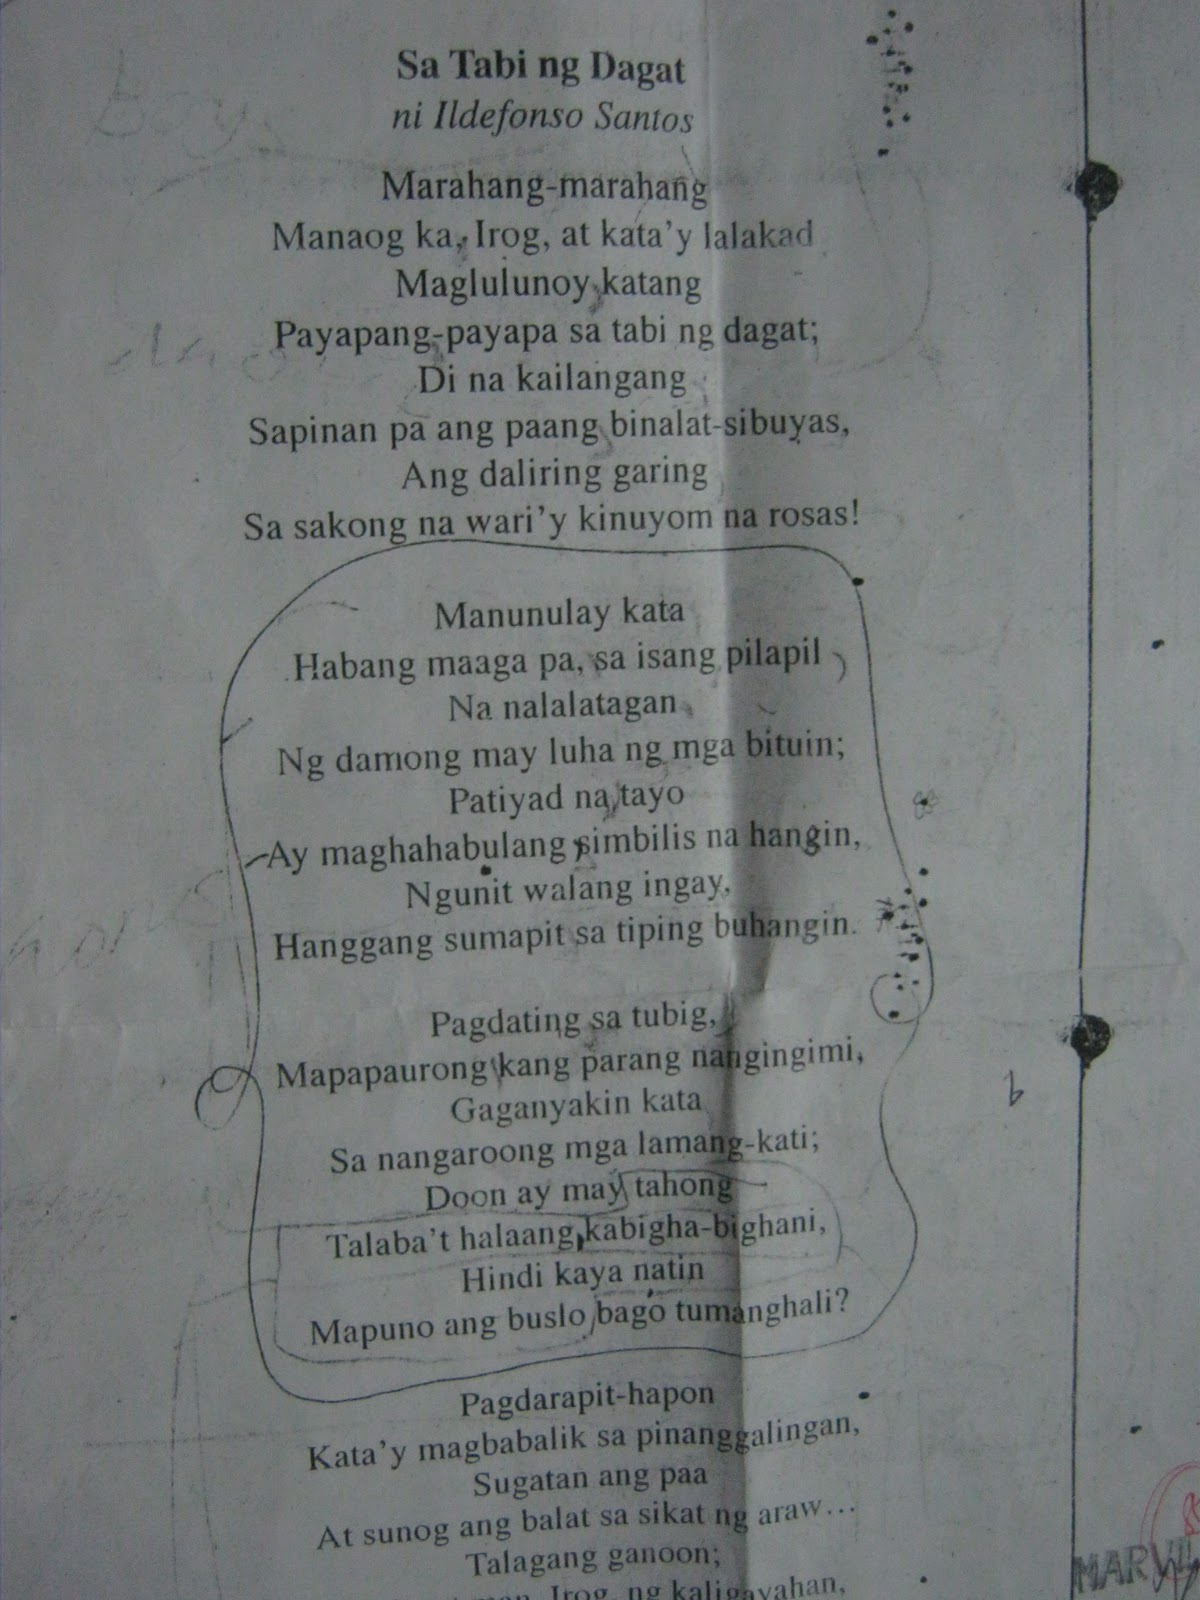 Sa Tabi ng Dagat
ni Ildefonso Santos
Marahang-marahang
Manaog ka, Irog, at kata'y lalakad
Maglulunoy katang
Payapang-payapa sa tabi ng dagat;
Di na kailangang
Sapinan pa ang paang binalat-sibuyas,
Ang daliring garing
Sa sakong na wari'y kinuyom na rosas!
Manunulay kata
Habang maaga pa, sa isang pilapil
Na nalalatagan
Ng damong may luha ng mga bituin;
Patiyad na tayo
Ay maghahabulang simbilis na hangin,
Ngunit walang ingay,
Hanggang sumapit sa tiping buhangin.
Pagdating sa tubig,
Mapapaurong kang parang nangingimi,
Gaganyakin kata
Sa nangaroong mga lamang-kati;
Doon ay may tahong
Talaba't halaang kabigha-bighani,
Hindi kaya natin
Mapuno ang buslo bago tumanghali?
Pagdarapit-hapon
Kata'y magbabalik sa pinanggalingan,
Sugatan ang paa
At sunog ang balat sa sikat ng araw...
Talagang ganoon;
man, Irog, ng kaligayahan,